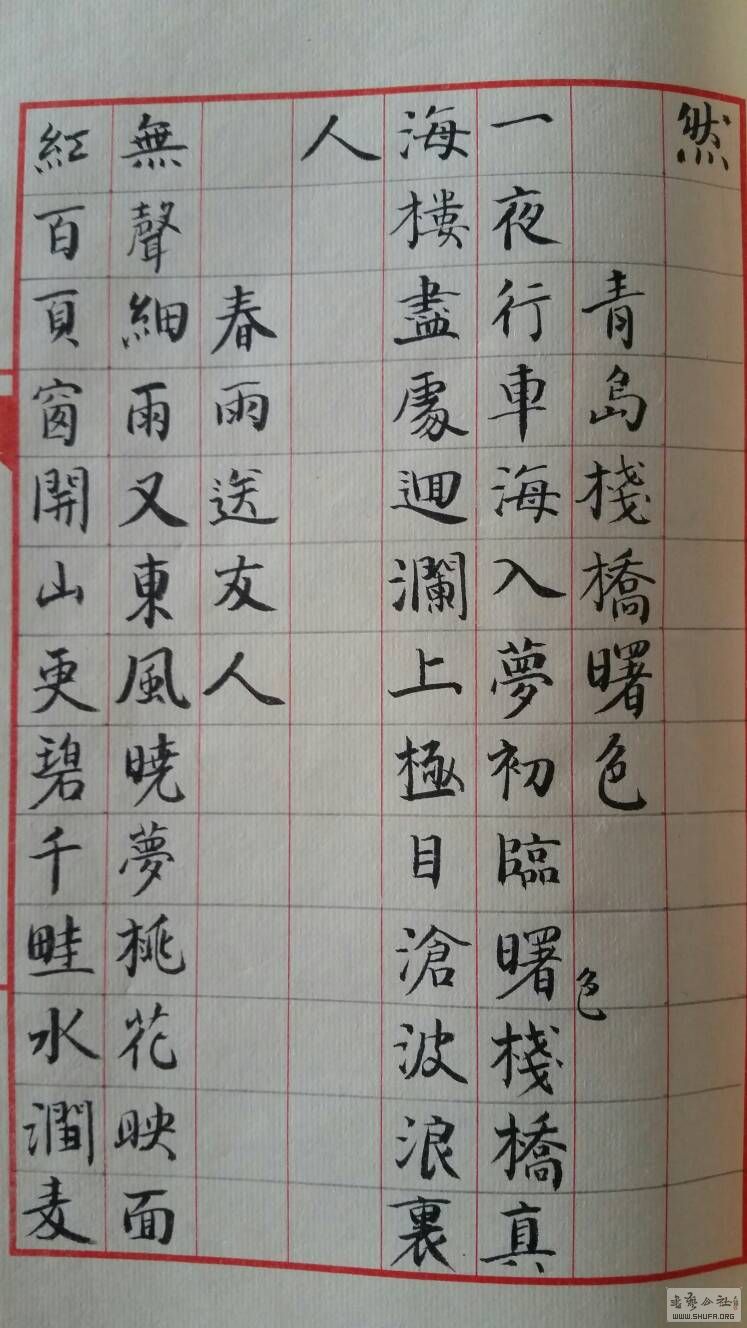 然
青島棧橋曙色
一夜行車海入夢初臨曙棧橋真
色
海樓盡處迴瀾上極目滄波浪裏
人
春雨送友人
無聲細雨又東風曉夢桃花映面
紅百頁窗開山更碧千畦水澗麦
WWW.SHUFA.ORG